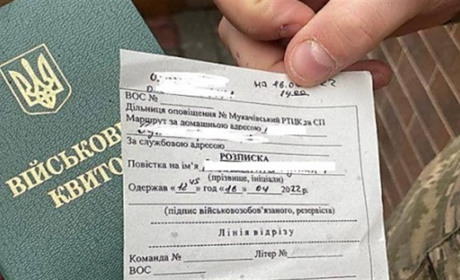 ВІЙСЬКОВ
КВИТО
НА 16.0 22
14.00
ВОС №
Дільниця оповіщення № Мукачівський РТЦК та СП
Маршрут за домашньою адресою
За службовою адресою
РОЗПИСКА
Повістка на ім'я
(прізвище, ініціали)
Одержав «12 45» год «16» 04 2022 р.
(підпис військовозобов'язаного, резервіста)
Лінія відрізу
Команда № Літер №
ВОС